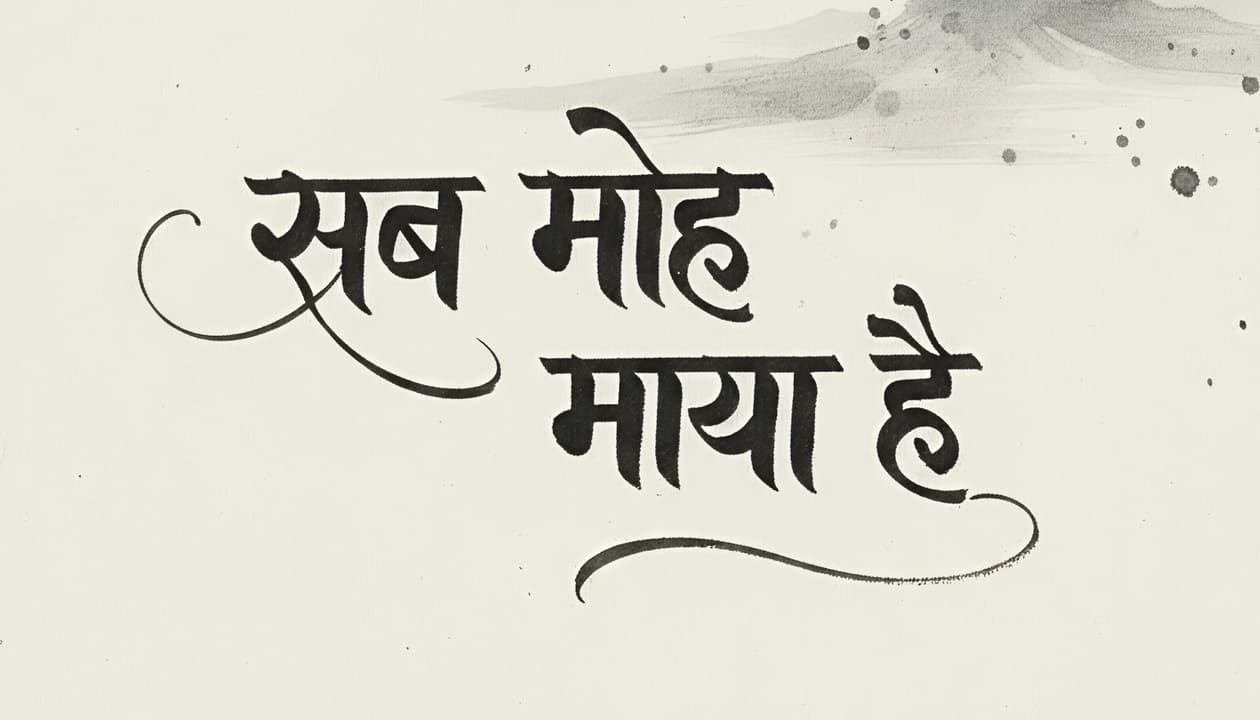 सब मोह
माया है